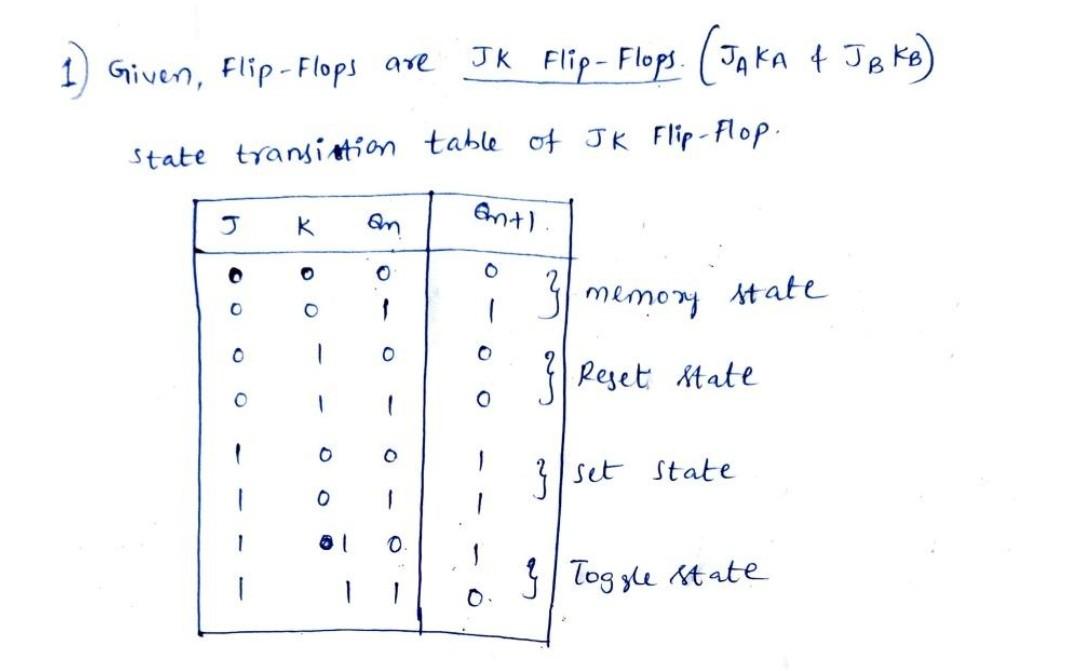 1) Given, Flip-Flops are JK Flip-Flops. (JAKA & JBKB)
State transition table of JK Flip-Flop.
J K Qn Qn+1.
0 0 0 0 } memory state
0 0 1 1
0 1 0 0 } Reset state
0 1 1 0
1 0 0 1 } set state
1 0 1 1
1 1 0. 1 } Toggle state
1 1 1 0.